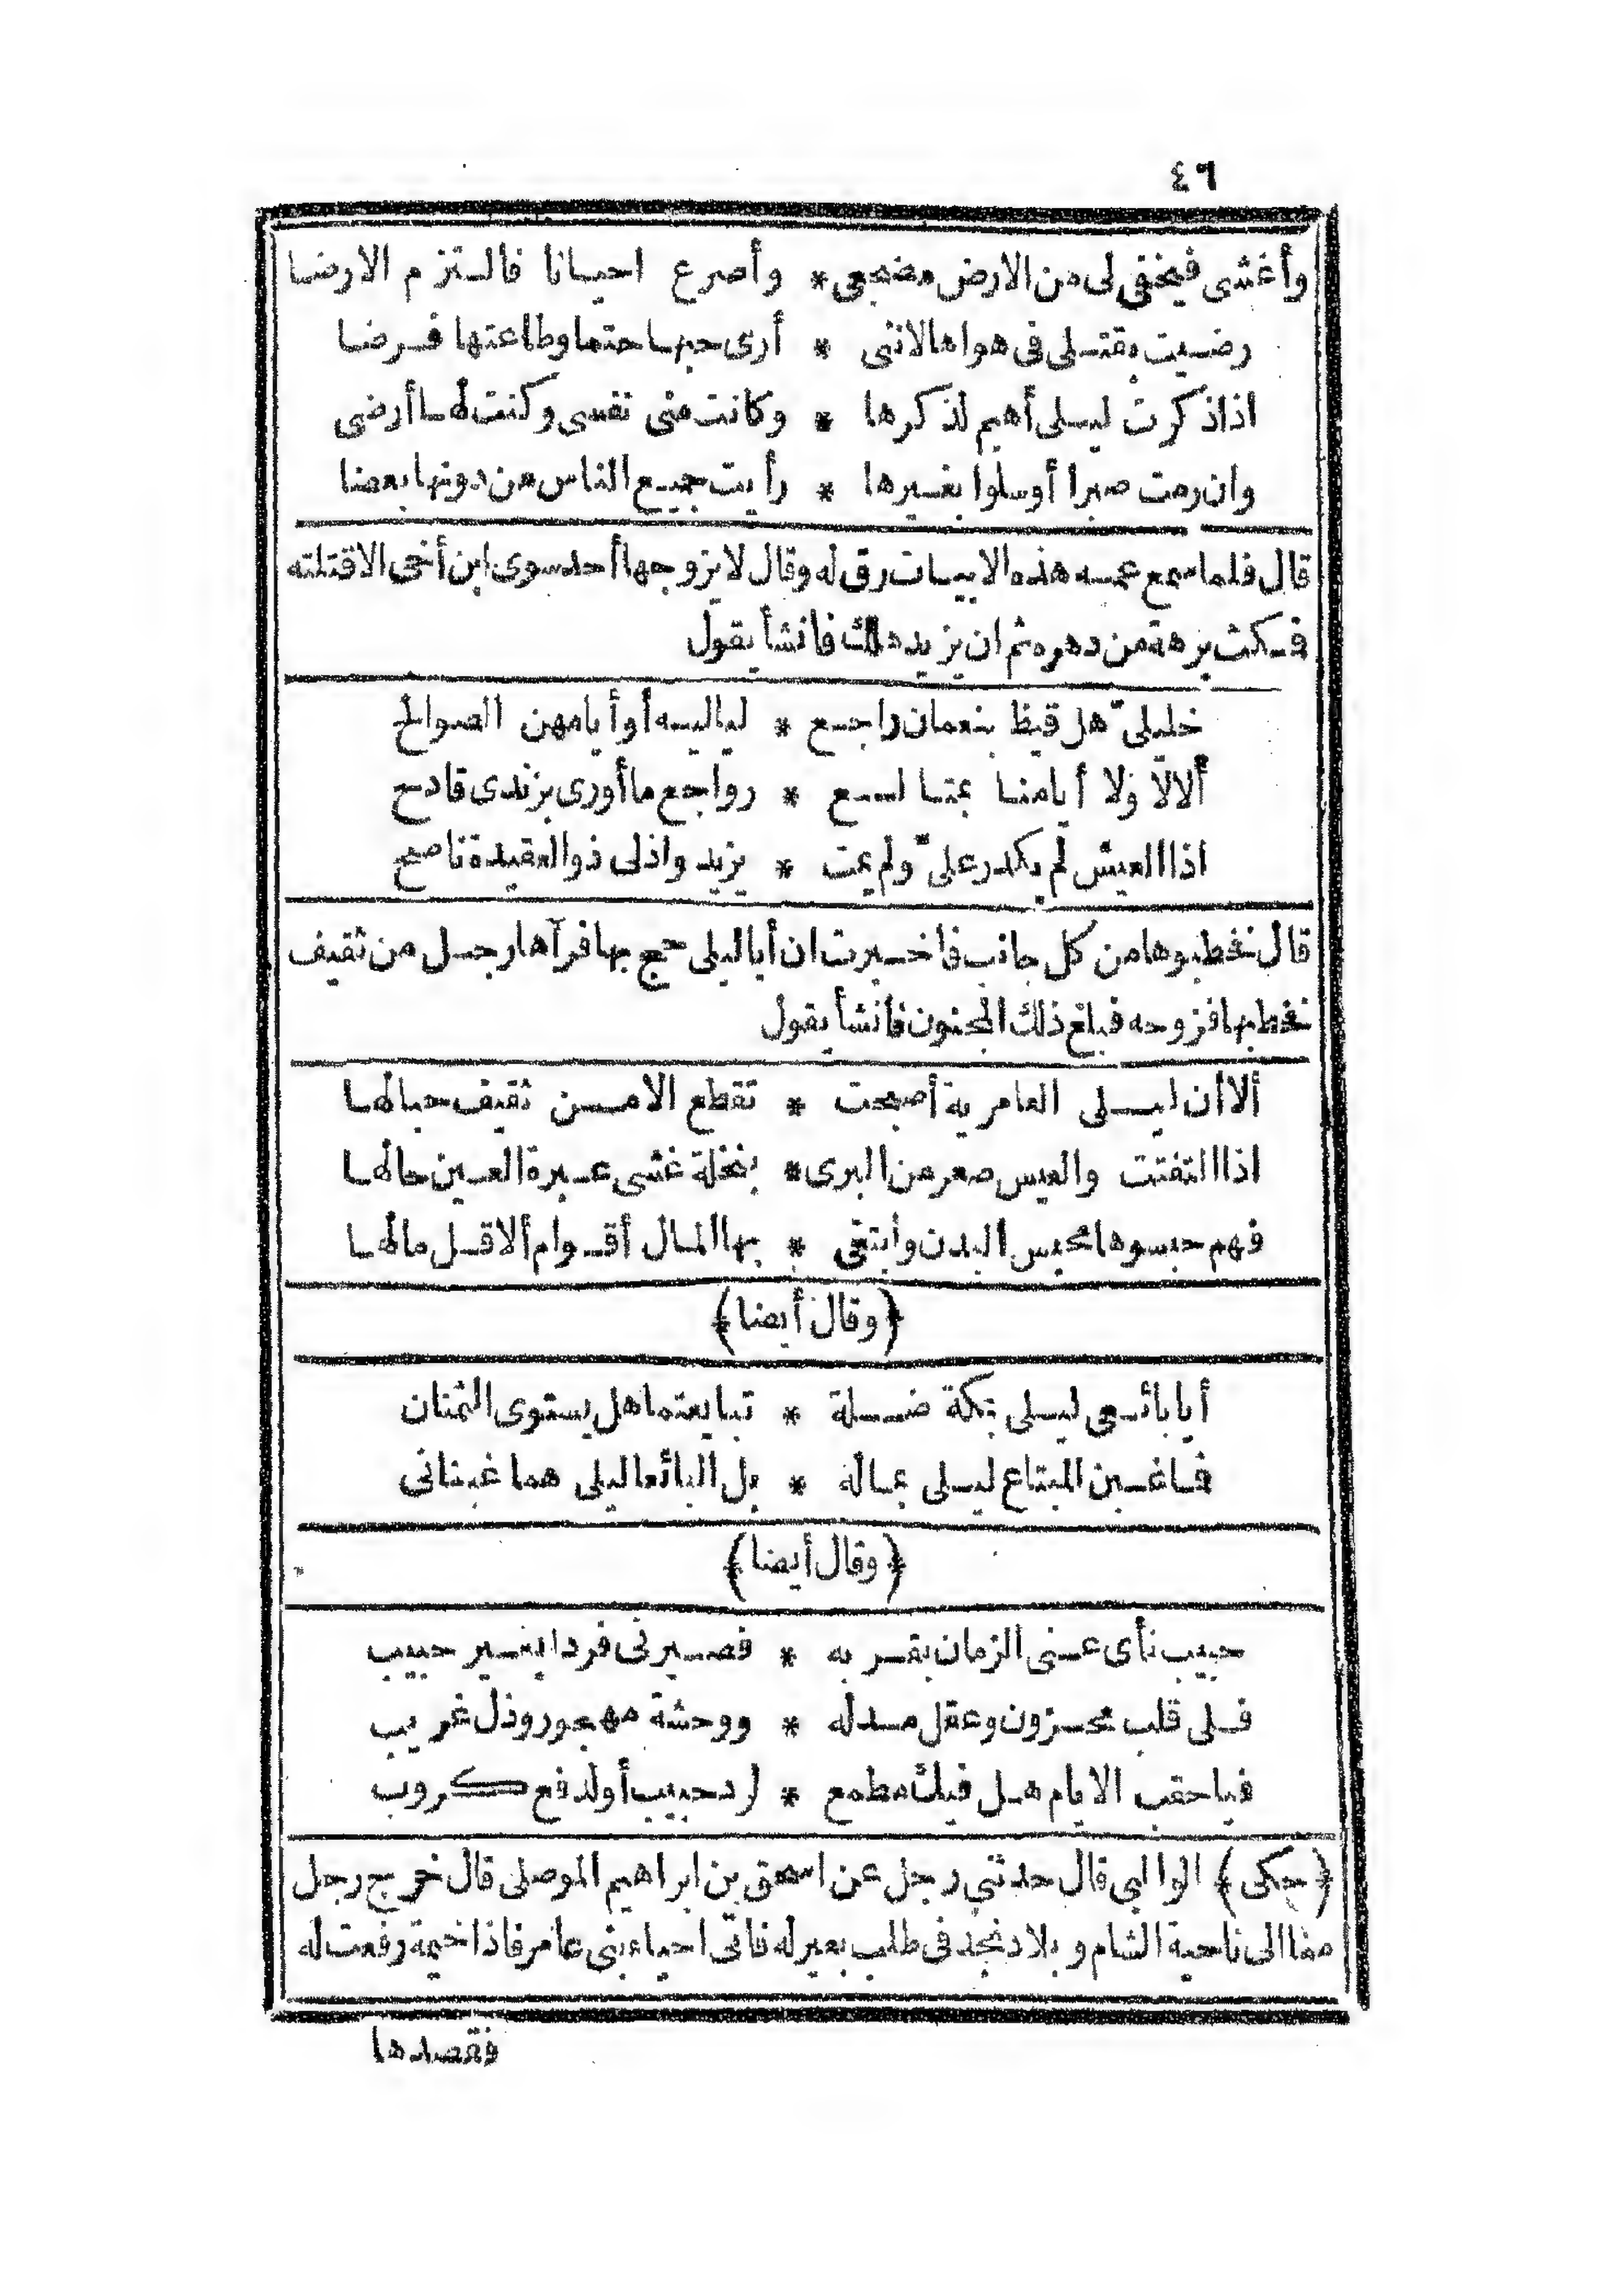 ٤٦
وأغشى فيخفى لى من الارض مضجعى * وأصرع احيانا فالتزم الارضا
رضيت بقتلى فى هواها لانثى * أرى حبها حتما وطاعتها فرضا
اذا ذكرت ليلى أهيم لذكرها * وكانت منى نفسى وكنت لها أرضى
وان رمت صبرا أوسلوا بغيرها * رأيت جميع الناس من دونها بعضا
قال فلما سمع عمه هذه الابيات رق له وقال لا يزوجها أحد سوى ابن أخى الا قتلته
فمكث برهة من دهره ثم ان يزيد هلك فانشأ يقول
خليلىّ هل قيظ بنعمان راجع * لياليه أو أيامهن الصوالح
ألا لا ولا أيامنا بمتالع * رواجع ما أورى بزندى قادح
اذا العيش لم يكدر علىّ ولم يمت * يزيد واذلى ذو العقيدة ناصح
قال فخطبوها من كل جانب فاخبرت ان أبا ليلى حج بها فرآها رجل من ثقيف
فخطبها فزوجه فبلغ ذلك المجنون فانشأ يقول
ألا أن ليلى العامرية أصبحت * تقطع الا من ثقيف حبالها
اذا التفتت والعيس صعر من البرى * بنخلة غشى عبرة العين حالها
فهم حبسوها محبس البدن وابتغى * بها المال أقوام ألا قل مالها
﴿وقال أيضا﴾
أيا بائعى ليلى بمكة ضلة * تبايعتما هل يستوى الثمنان
فما غبن المبتاع ليلى بماله * بل البائعا ليلى هما غبنانى
﴿وقال أيضا﴾
حبيب نأى عنى الزمان بقربه * فصيرنى فردا بغير حبيب
فلى قلب محزون وعقل مدله * ووحشة مهجور وذل غريب
فيا حقب الايام هل فيك مطمع * لرد حبيب أولدفع كروب
﴿حكى﴾ الوالبى قال حدثنى رجل عن اسحق بن ابراهيم الموصلى قال خرج رجل
منا الى ناحية الشام وبلاد نجد فى طلب بعير له فاتى احياء بنى عامر فاذا خيمة رفعت له
فقصدها